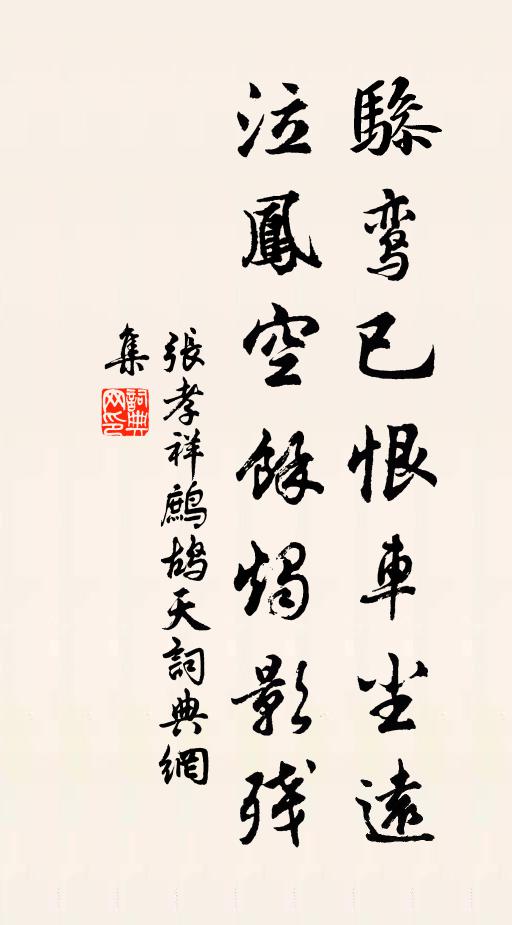 驂鸾已恨車尘遠
泣鳳空餘燭影残
張孝祥鷓鴣天詞典網
集
詞典网印